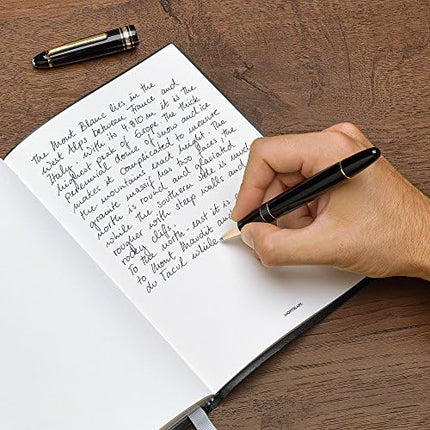 The Mont Blanc lies in the
West Alps between France and
Italy. With its 4,810 m it is the
highest peak of Europe. The thick
perennial dome of snow and ice
makes it complicated to measure
the mountain's exact height. The
granite massif has two faces, the
north is round and glaciated
while the southern side is much
rougher with steep walls and
rocky cliffs.
To the north-east it is
to Mont Maudit and
du Tacul while
MONTBLANC